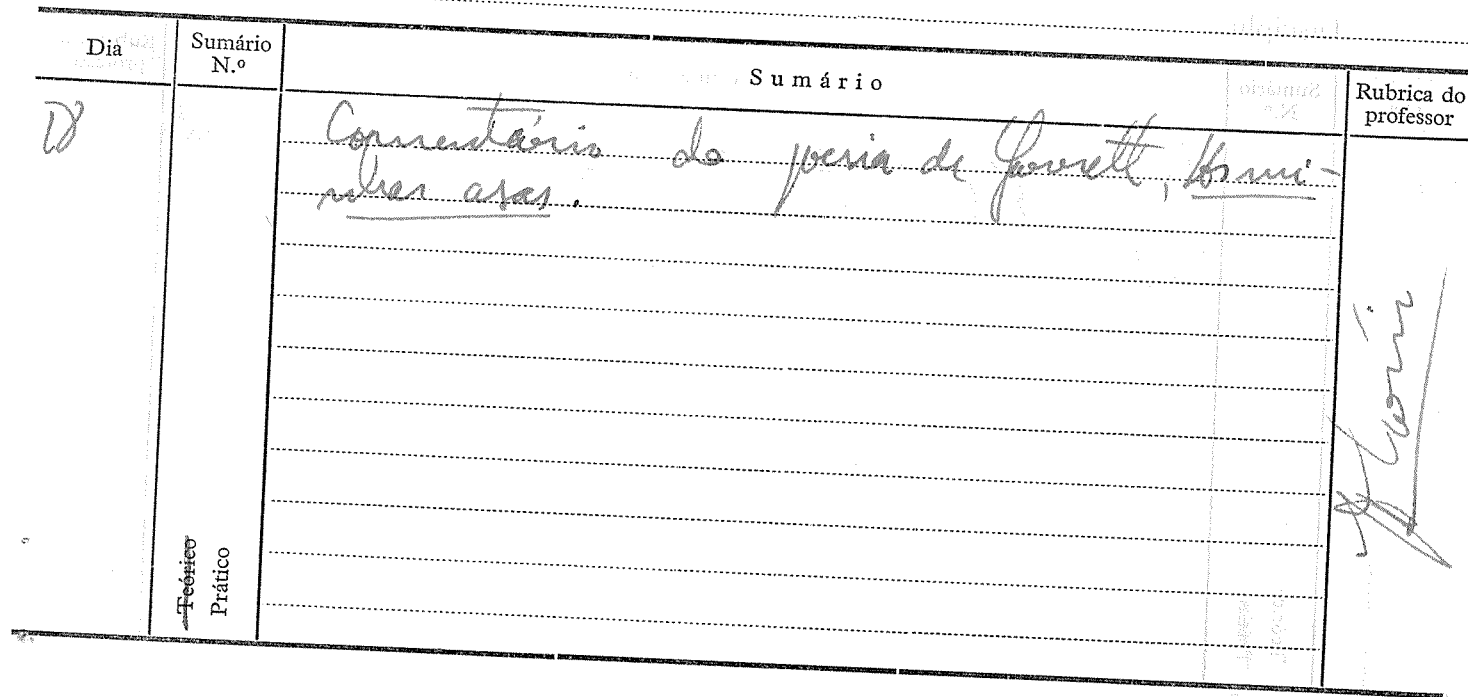 Dia
Sumário N.º
Sumário
Rubrica do professor
18
Comentário da poesia de Garrett, As mi-
nhas asas.
Teórico
Prático